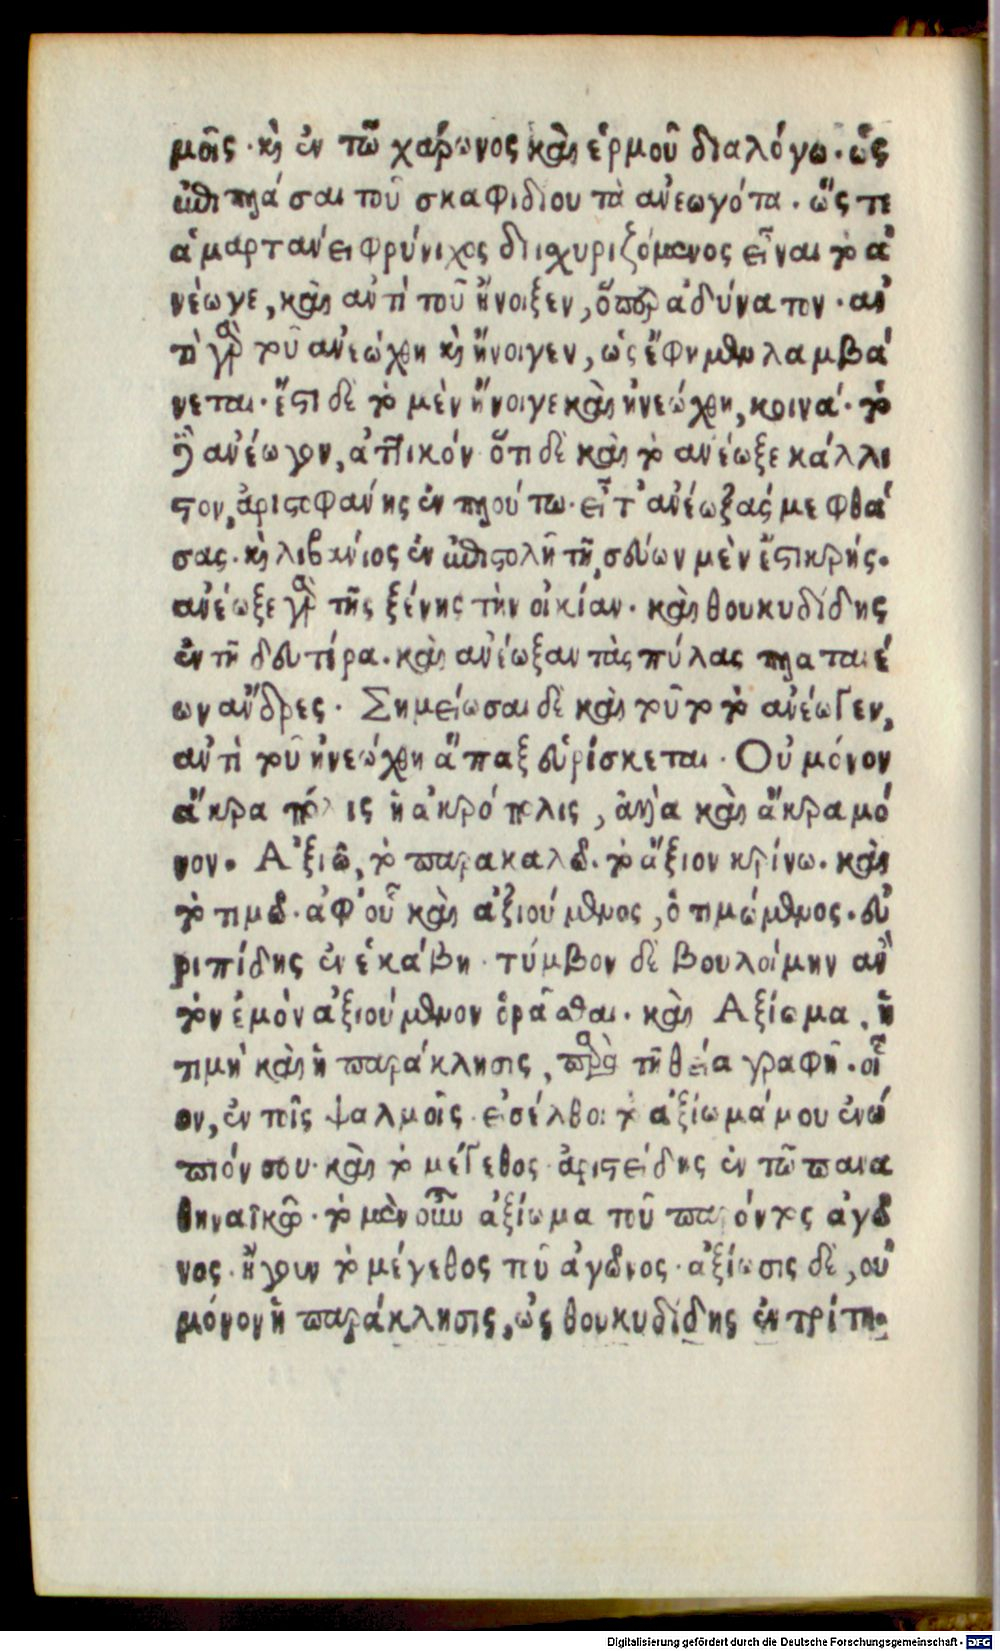 μοῖς· κὶ ἐν τῷ χάρωνος καὶ ἑρμοῦ διαλόγω· ὡς
ἐπιπλάσαι τοῦ σκαφιδίου τὰ ἀνεωγότα· ὥστε
ἁμαρτάνει φρύνιχος διισχυριζόμενος εἶναι τὸ ἀ
νέωγε, καὶ ἀντὶ τοῦ ἤνοιξεν, ὅπερ ἀδύνατον· ἀν
τὶ γὰρ τοῦ ἀνεώχθη κὶ ἤνοιγεν, ὡς ἔφημεν λαμβά
νεται· ἔστι δὲ τὸ μὲν ἤνοιγε καὶ ἠνεώχθη, κοινά· τὸ
δὲ ἀνέωγον, ἀττικόν ὅτι δὲ καὶ τὸ ἀνέωξε κάλλι
στον, ἀριστοφάνης ἐν πλούτω· εἶτ' ἀνέωξάς με φθά
σας· κὶ λιβάνιος ἐν ἐπιστολῇ τῇ, σεύων μὲν ἔστι κρής·
ἀνέωξε γὰρ τῆς ξένης τὴν οἰκίαν· καὶ θουκυδίδης
ἐν τῇ δευτέρα· καὶ ἀνέωξαν τὰς πύλας πλαταιέ
ων ἄνδρες· Σημείωσαι δὲ καὶ τοῦτο τὸ ἀνέωγεν,
ἀντὶ τοῦ ἠνεώχθη ἅπαξ εὑρίσκεται· Οὐ μόνον
ἄκρα πόλις ἢ ἀκρόπολις, ἀλλὰ καὶ ἄκρα μό
νον· Ἀξιῶ, τὸ παρακαλῶ· τὸ ἄξιον κρίνω· καὶ
τὸ τιμῶ· ἀφ' οὗ καὶ ἀξιούμενος, ὁ τιμώμενος· εὐ
ριπίδης ἐν ἑκάβη· τύμβον δὲ βουλοίμην ἂν
τὸν ἐμὸν ἀξιούμενον ὁρᾶσθαι· καὶ Ἀξίωμα, ἡ
τιμὴ καὶ ἡ παράκλησις, παρὰ τῇ θεία γραφῇ· οἷ
ον, ἐν τοῖς ψαλμοῖς· εἰσέλθοι τὸ ἀξίωμά μου ἐνώ
πιόν σου· καὶ τὸ μέγεθος· ἀριστείδης ἐν τῷ πανα
θηναϊκῷ· τὸ μὲν οὖν ἀξίωμα τοῦ παρόντος ἀγῶ
νος· ἤγουν τὸ μέγεθος τοῦ ἀγῶνος· ἀξίωσις δὲ, οὐ
μόνον ἡ παράκλησις, ὡς θουκυδίδης ἐν τρίτη·
Digitalisierung gefördert durch die Deutsche Forschungsgemeinschaft - DFG